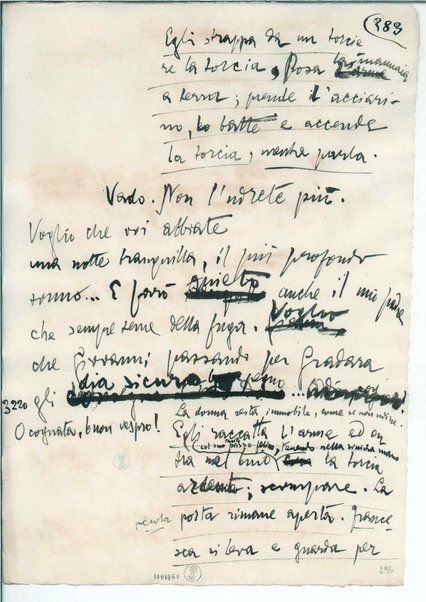 383
Egli strappa da un torcie
re la torcia, posa la mannaia
a terra; prende l'acciari-
no, lo batte e accende
la torcia, mentre parla.
Vado. Non l'udrete più.
Voglio che voi abbiate
una notte tranquilla, il più profondo
sonno... E farò quieto anche il mio padre
che sempre teme della fuga. Voglio
che Giovanni passando per Gradara
gli dia sicuro pegno ...
3220
La donna resta immobile, come se non udisse.
O cognata, buon vespro!
Egli raccatta l'arme ed en
tra nel buio, tenendo nella sinistra mano la torcia
ardente; scompare. La
piccola porta rimane aperta. France
sca si leva e guarda per
1098961
296